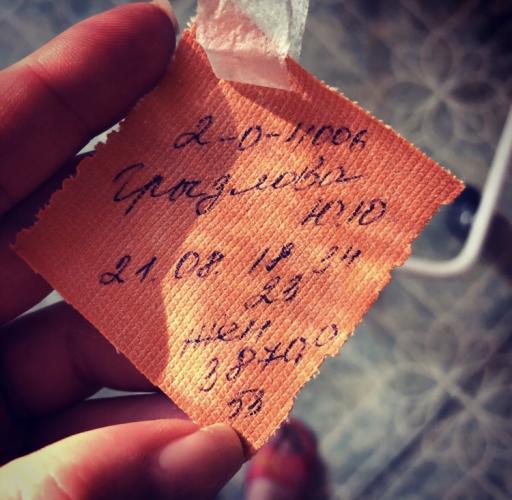 2-0-11006
Грызлова
Ю Ю
21.08.18 24
23
жен
3870,0
53